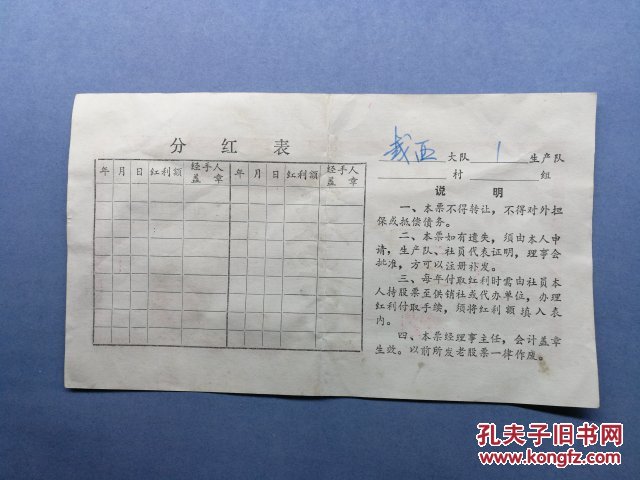 分 红 表
年 月 日 红利额 经手人盖章 年 月 日 红利额 经手人盖章
西 大队 1 生产队
村 组
说 明
一、本票不得转让，不得对外担
保或抵偿债务。
二、本票如有遗失，须由本人申
请，生产队、社员代表证明，理事会
批准，方可以注册补发。
三、每年付取红利时需由社员本
人持股票至供销社或代办单位，办理
红利付取手续，须将红利额填入表
内。
四、本票经理事主任，会计盖章
生效。以前所发老股票一律作废。
孔夫子旧书网
www.kongfz.com